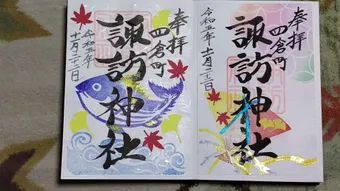 奉拝
四倉町
諏訪神社
令和五年十一月二十三日
奉拝
四倉町
諏訪神社
令和五年
十一月二十三日